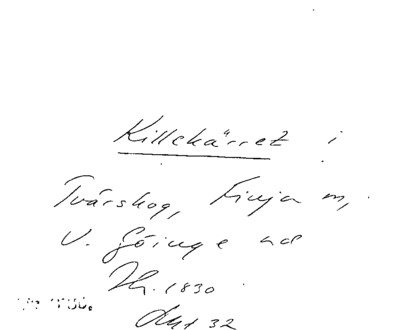 Killekärret i
Tvärskog, Finja m,
V. Göinge hd
1830
32